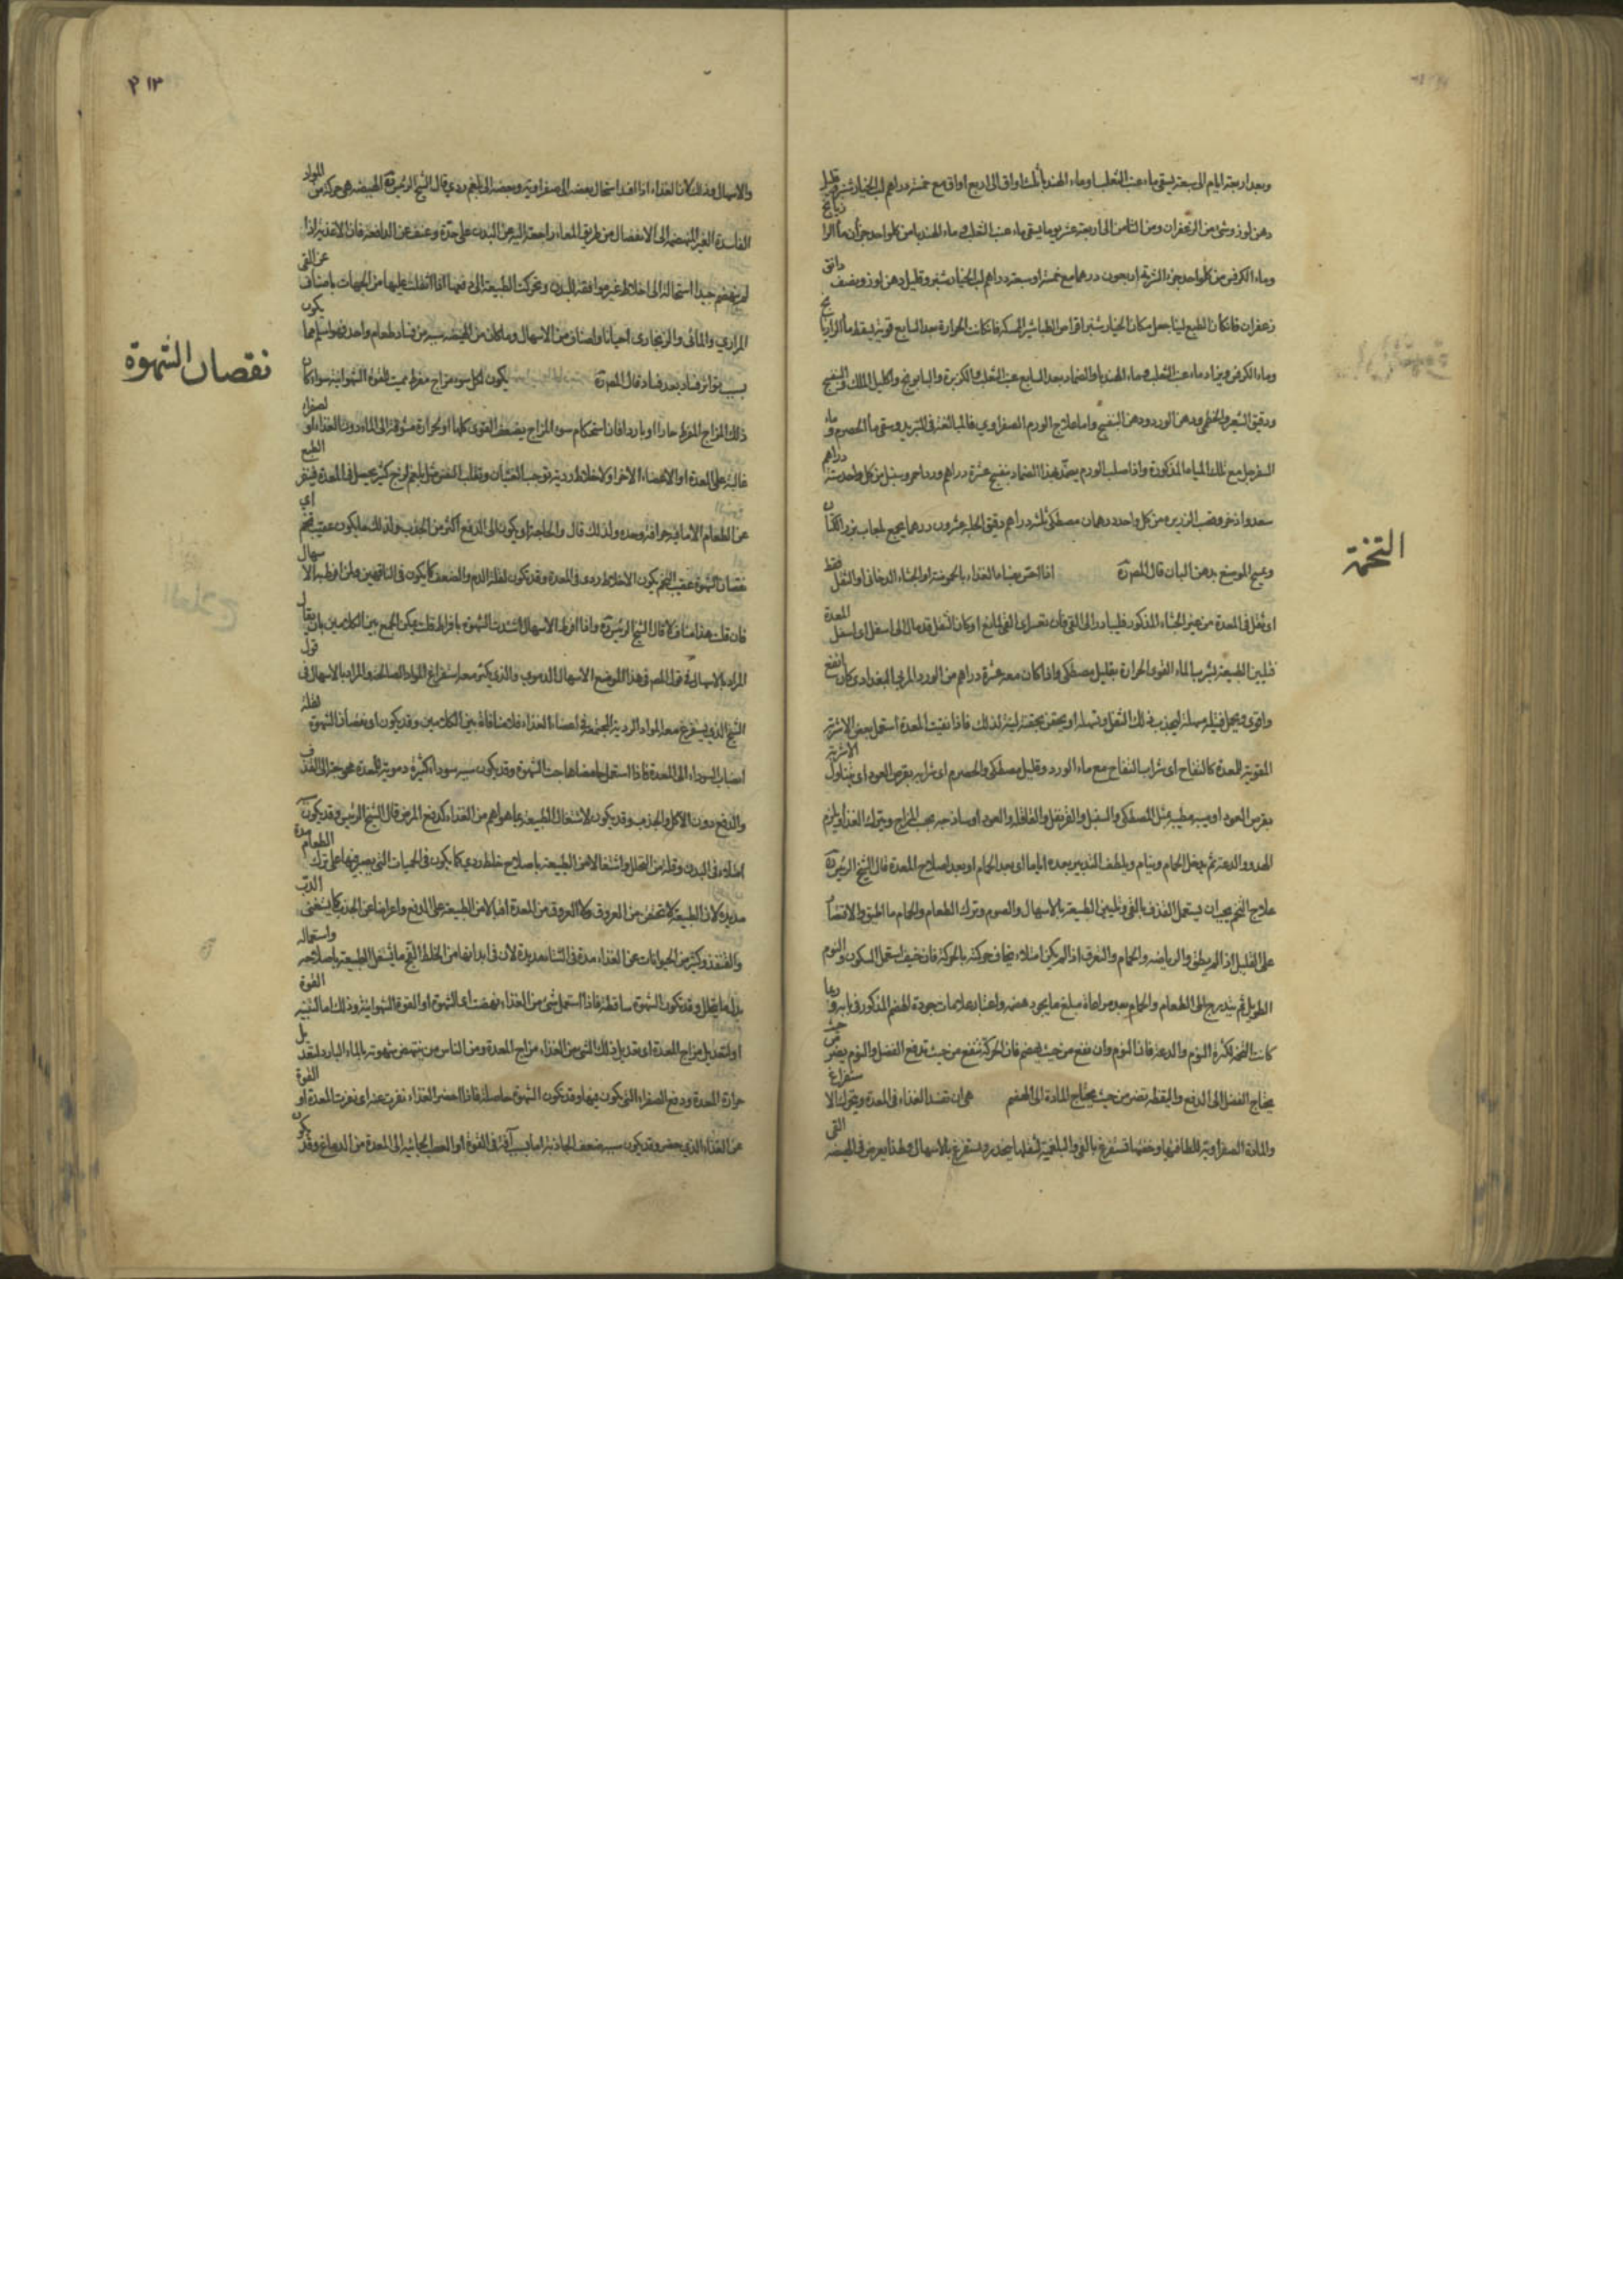 وبعد اربعة ايام الى سبعة يسقى ماء عنب الثعلب وماء الهندبا ثلث اواق الى اربع اواق مع خمسة دراهم لب الخيار شنبر
دهن لوز وشئ من الزعفران ومن الثامن الى اربعة عشر يوما يسقى ماء عنب الثعلب و ماء الهندبا من كل واحد جزأن ماء الرا زيانج
وماء الكرفس من كل واحد جزء الشربة اربعون درهما مع خمسة او سبعة دراهم لب الخيار شنبر وقليل دهن لوز ونصف دانق
زعفران فان كان الطبع لينا جعل مكان الخيار شنبر اقراص الطباشير الممسكة فان كانت الحرارة بعد السابع قوية يسقط ماء الرازيانج
وماء الكرفس ويزاد ماء عنب الثعلب وماء الهندبا والضماد بعد السابع عنب الثعلب والكزبرة والبابونج واكليل الملك والبنفسج
ودقيق الشعير والخطمى ودهن الورد ودهن البنفسج واما علاج الورم الصفراوي فالمبالغة فى التبريد وسقى ماء الحصرم وماء
السفرجل مع تلك المياه المذكورة واذا صلب الورم يضمد بهذا الضماد بنفسج عشرة دراهم ورد احمر وسنبل من كل واحد ستة دراهم
سعد واذخر وقصب الذريره من كل واحد درهمان مصطكى ثلثه دراهم دقيق الحلبه عشرون درهما يجمع بلعاب بزر الكتان
ويمسح الموضع بدهن البان قال المص ره اذا احتس بفساد الغذاء بالحموضة او الجشاء الدخانى او الثقل فقط
اى ثقل فى المعدة من غير الجشاء المذكور فليبادر الى القى فان تعسر اى القى لمانع او كان الثقل قد مال الى اسفل اى اسفل المعدة
فليلين الطبيعة بشرب الماء القوى الحرارة بقليل مصطكى واذا كان معه عشرة دراهم من الورد المربى البغدادى كان انفع
واقوى ويحمل فتيلة مسهلة ليجذب ذلك الثقل وتسهله او يحتقن بحقنة لينة لذلك فاذا نقيت المعدة استعمل بعض الاشربة
المقوية للمعدة كالتفاح اى شراب التفاح مع ماء الورد وقليل مصطكى والحصرم اى شرابه بقرص العود اى يتناول الاشربة
بقرص العود او بميبه مطيبه بمثل المصطكى والسنبل والقرنفل والقاقله والعود او ساذجه بحسب المزاج ويترك الغذاء ويلزم
الهدو والدعة ثم يدخل الحمام وينام ويلطف التدبير بعده اياما اى بعد الحمام او بعد اصلاح المعدة قال الشيخ الرئيس ره
علاج التخم يجب ان يستعمل القذف بالقى وتليين الطبيعة بالاسهال والصوم وترك الطعام والحمام ما اطيق والاقتصار
على القليل اذا لم يطق والرياضة والحمام والتعرق اذا لم يكن امتلاء يخاف حركته بالحركة فان خيف استعمل السكون والنوم
الطويل ثم يتدرج الى الطعام والحمام بعد مراعاة مبلغ ما يجود هضمه واعتبار علامات جودة الهضم المذكور فى بابه وربما
كانت التخمة لكثرة النوم والدعة فان النوم وان نفع من حيث يهضم فان الحركة تنفع من حيث تدفع الفضل والنوم يضر من حيث
يحتاج الفضل الى الدفع واليقظة تضر من حيث يحتاج المادة الى الهضم هى ان تفسد الغذاء فى المعدة ويتحرك الاستفراغ
والمادة الصفراوية للطافتها وخفتها تستفرغ بالقى والبلغمية لثقلها ينحدر ويستفرغ بالاسهال ولهذا يعرض فى الهيضة القى
التخمة
٢١٣
والاسهال وذلك لان الغذاء اذا فسد استحال بعضه الى صفراوية وبعضه الى بلغم ردي قال الشيخ الرئيس ره الهيضه هى حركة من المواد
الفاسدة الغير المنهضمة الى الانفصال من طريق المعاء راجعة اليه من البدن على حدة وعنف من الدافعة فان الاغذية اذا
لم تنهضم جيدا استحالت الى اخلاط غير موافقة للبدن وتحركت الطبيعة الى دفعها اذا اثقلت عليها من الجهات باصناف من القى
المراري والمائى والزنجاري احيانا واصناف من الاسهال وما كان من الهيضه سببه من فساد طعام واحد فهو اسلم مما يكون
بسبب تواتر فساد بعد فساد قال المص ره يكون لكل سوء مزاج مفرط يميت القوة الشهوانية سواء كان
ذلك المزاج المفرط حارا او باردا فان استحكام سوء المزاج يضعف القوى كلها او لحرارة مشوقة الى الماء دون الغذاء او لصفراء
غالبة على المعدة او الاعضاء الاخر او لاخلاط ردية توجب الغثيان وتقلب النفس مثل بلغم لزج كثير يحصل فى المعدة فينفر الطبع
عن الطعام الا ما فيه حرافة وحده ولذلك قال والحاجة اى ويكون الى الدفع اكثر من الجذب ولذلك ما يكون عقيب التخم اى
نقصان الشهوة عقيب التخم يكون الاخلاط ردى فى المعدة وقد يكون لقلة الدم والضعف كما يكون فى الناقهين ولمن افرط به الاسهال
فان قلت هذا مناف لما قال الشيخ الرئيس ره واذا افرط الاسهال اشتدت الشهوة بافراط قلت يمكن الجمع بين الكلامين بان يقال
المراد بالاسهال فى قول المص فى هذا الموضع الاسهال الدموى والذي يكثر معه استفراغ المواد الصالحة والمراد بالاسهال فى قول
الشيخ الذي يستفرغ معه المواد الردية المجتمعة فى اعضاء الغذاء فلا منافاة بين الكلامين وقد يكون اى نقصان الشهوة لقلة
انصباب السوداء الى المعدة فاذا استعمل حامضا هاجت الشهوة وقد يكون سببه سوداء كثيرة دموية للمعدة محوجة الى القذف
والدفع دون الاكل والجذب وقد يكون لاشتغال الطبيعة بما هو اهم من الغذاء كدفع المرض قال الشيخ الرئيس وقد يكون
امتلاء فى البدن وقلة من التحلل واشتغالا من الطبيعة باصلاح خلط ردى كما يكون فى الحميات التى يصبر فيها على ترك الطعام مدة
مديدة لان الطبيعة لا تمتص من العروق ولا العروق من المعدة اقبالا من الطبيعة على الدفع واعراضا عن الجذب كما يستغنى الدب
والقنفذ وكثير من الحيوانات عن الغذاء مدة فى الشتاء مديدة لان فى ابدانها من الخلط الفج ما يشتغل الطبيعة باصلاحه واستعماله
بدل ما يتحلل وقد تكون الشهوة ساقطة فاذا استعمل شئ من الغذاء نهضت اى الشهوة او القوة الشهوانية وذلك اما لتنبيه القوة
او لتعديل مزاج المعدة اى تعديل ذلك الشئ من الغذاء مزاج المعدة ومن الناس من ينتهض شهوته بالماء البارد لتعديل
حرارة المعدة ودفع الصفراء التى يكون فيها وقد تكون الشهوة حاصلة فاذا احضر الغذاء نفرت عنه اى نفرت المعدة او القوة
عن الغذاء الذي حضر وقد يكون سببه ضعف الجاذبة اما بسبب آفة فى القوة او العصب الجائية الى المعدة من الدماغ وقد يكون
نقصان الشهوة